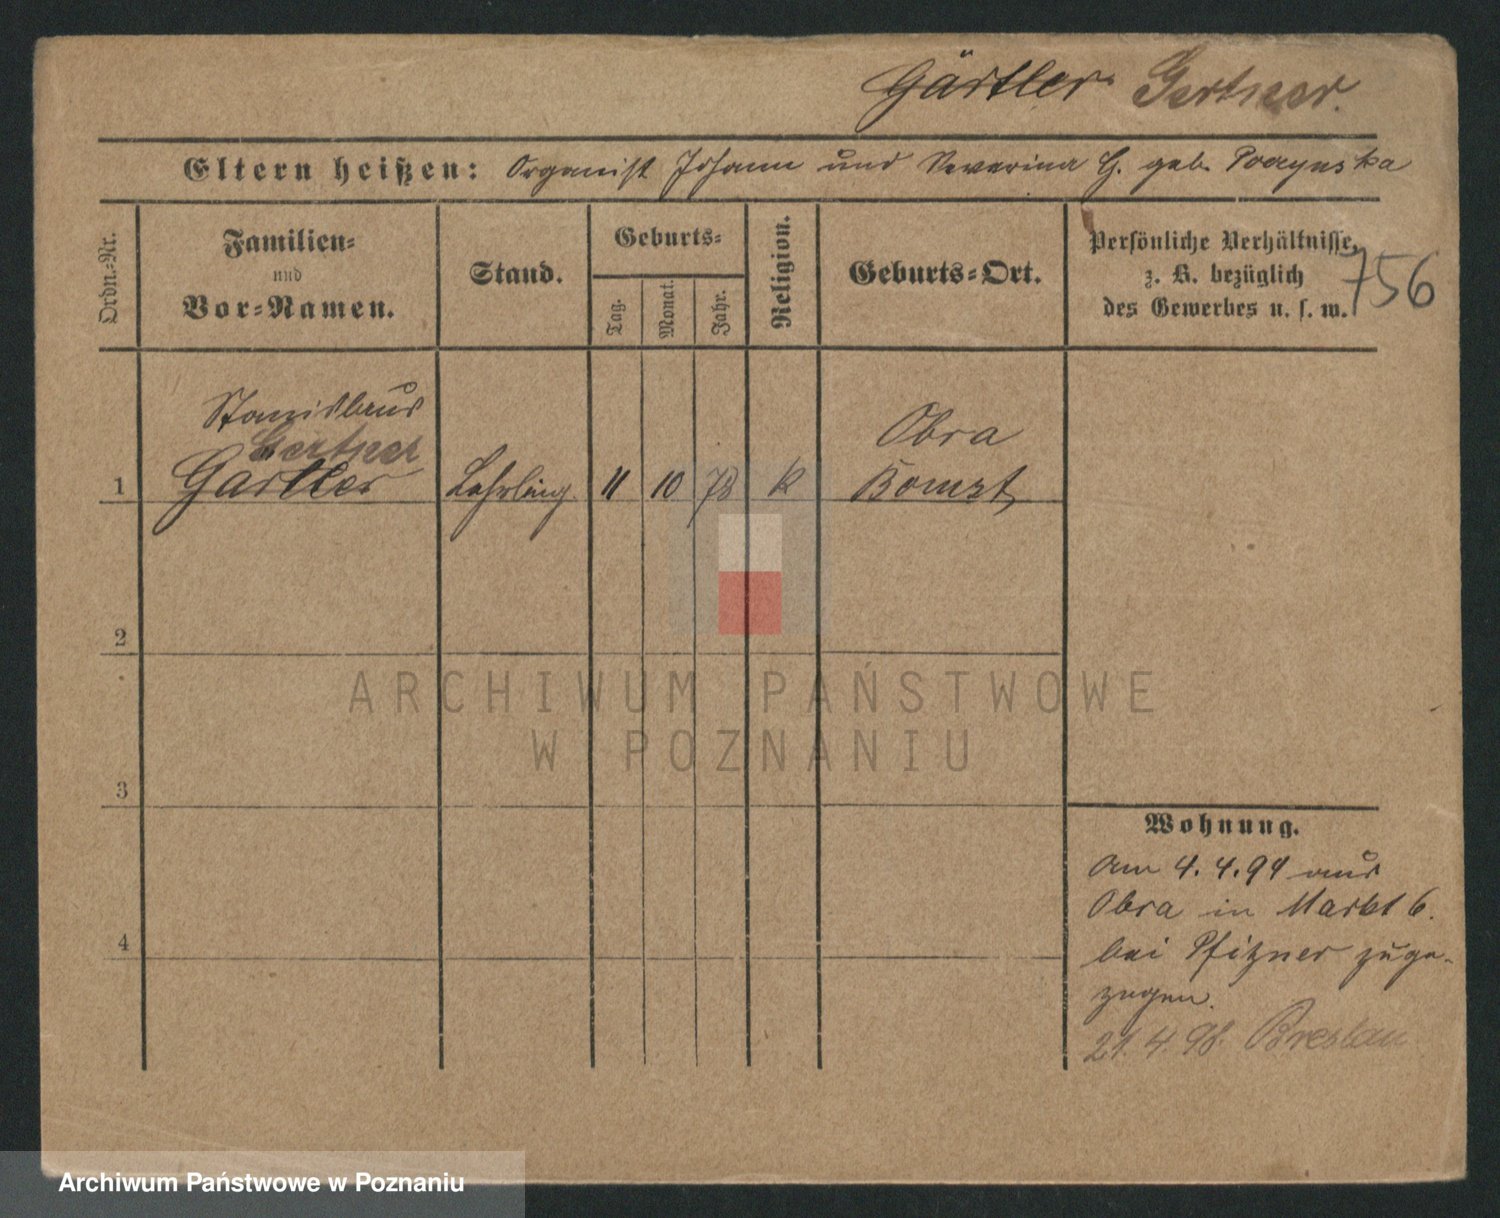 Gärtler Gertner.
Eltern heißen: Organist Johann und Severina G. geb.
Ordn.-Nr.
Familien-
und
Vor-Namen.
Stand.
Geburts-
Tag.
Monat.
Jahr.
Religion.
Geburts-Ort.
Persönliche Verhältnisse,
z. B. bezüglich
des Gewerbes u. s. w.
756
Stanislaus
Gertner
1 Gartler Lehrling 11 10 78 K
Obra
Bomst
2
3
4
Wohnung.
am 4. 4. 94 aus
Obra in Markt 6.
bei Pfitzner zuge-
zogen.
21. 4. 98. Breslau
ARCHIWUM PAŃSTWOWE
W POZNANIU
Archiwum Państwowe w Poznaniu